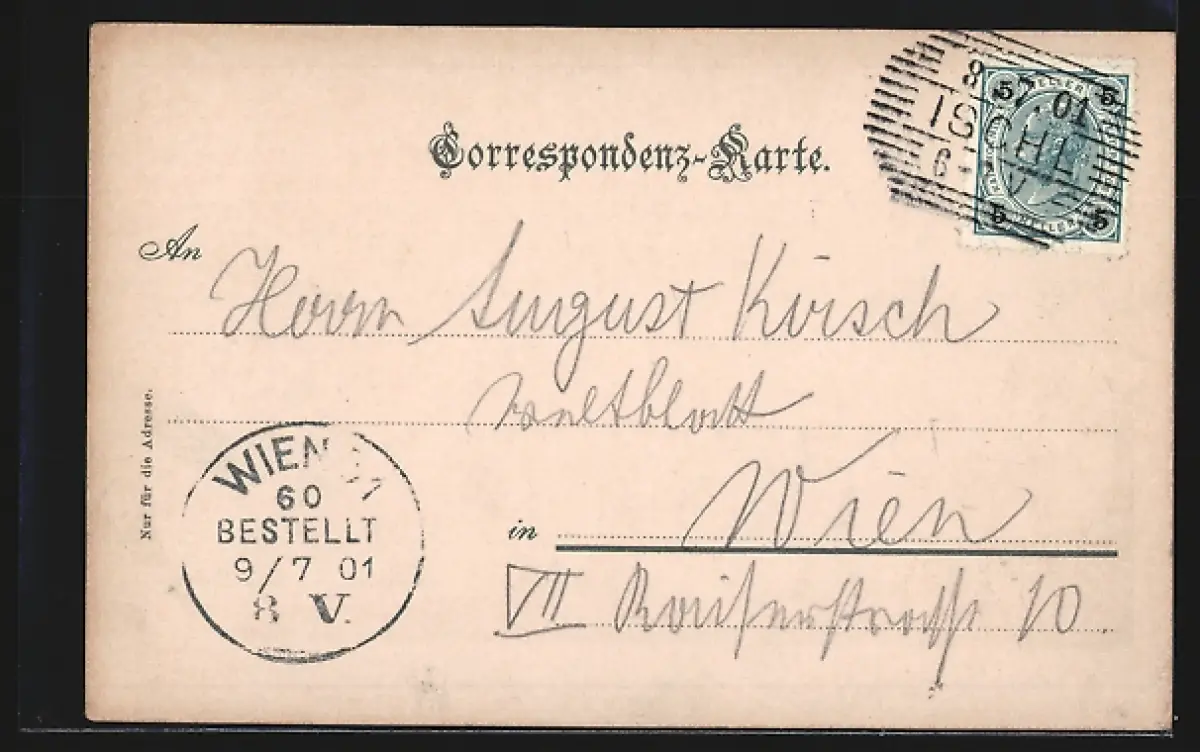 8. 7. 01
ISCHL
6 - V
5 HELLER 5
5 HELLER 5
Correspondenz-Karte.
An
Herrn August Kirsch
Weltblatt
Wien
in
VII Kaiserstrasse 10.
Nur für die Adresse.
WIEN
60
BESTELLT
9/7 01
8 V.